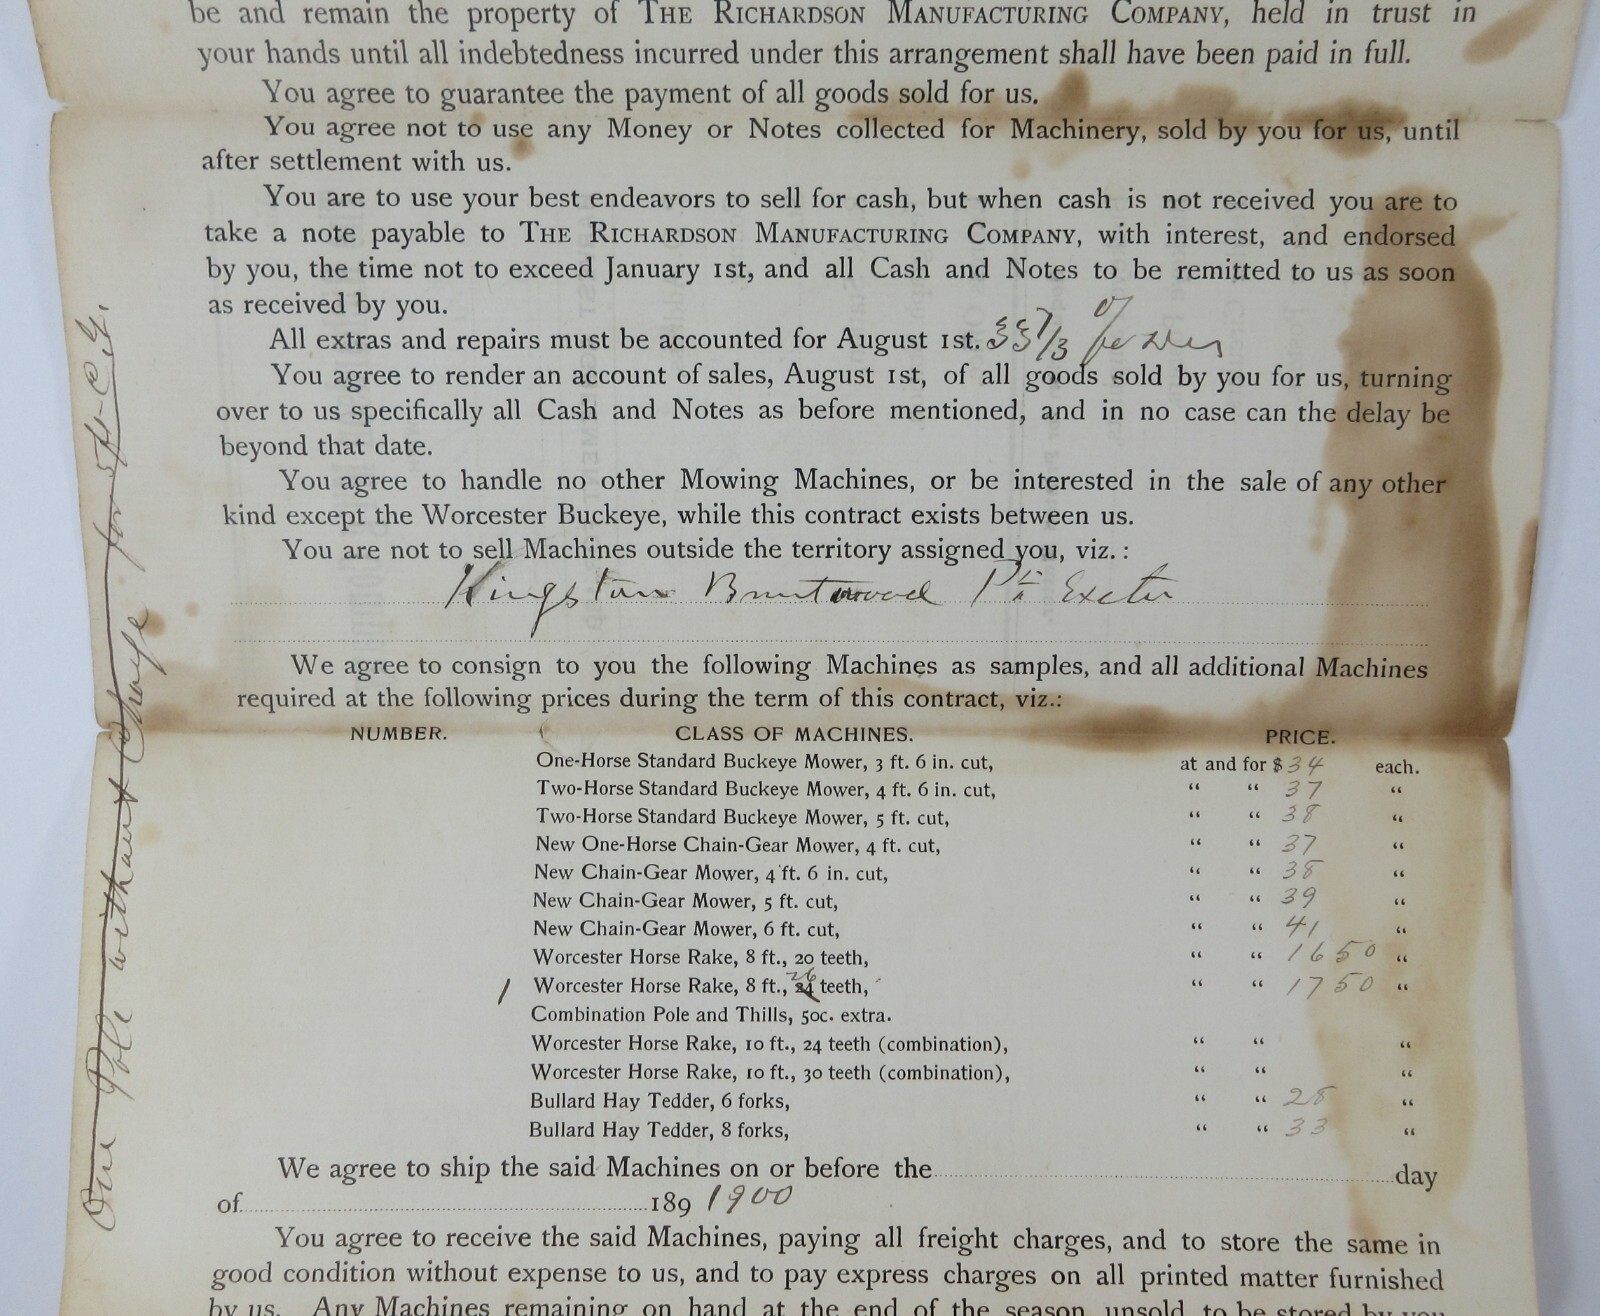 be and remain the property of THE RICHARDSON MANUFACTURING COMPANY, held in trust in
your hands until all indebtedness incurred under this arrangement shall have been paid in full.
You agree to guarantee the payment of all goods sold for us.
You agree not to use any Money or Notes collected for Machinery, sold by you for us, until
after settlement with us.
You are to use your best endeavors to sell for cash, but when cash is not received you are to
take a note payable to THE RICHARDSON MANUFACTURING COMPANY, with interest, and endorsed
by you, the time not to exceed January 1st, and all Cash and Notes to be remitted to us as soon
as received by you.
All extras and repairs must be accounted for August 1st.
You agree to render an account of sales, August 1st, of all goods sold by you for us, turning
over to us specifically all Cash and Notes as before mentioned, and in no case can the delay be
beyond that date.
You agree to handle no other Mowing Machines, or be interested in the sale of any other
kind except the Worcester Buckeye, while this contract exists between us.
You are not to sell Machines outside the territory assigned you, viz.:
Kingston Brentwood Pt Exeter
We agree to consign to you the following Machines as samples, and all additional Machines
required at the following prices during the term of this contract, viz.:
NUMBER. CLASS OF MACHINES. PRICE.
One-Horse Standard Buckeye Mower, 3 ft. 6 in. cut, at and for $34 each.
Two-Horse Standard Buckeye Mower, 4 ft. 6 in. cut, “ “ 37 “
Two-Horse Standard Buckeye Mower, 5 ft. cut, “ “ 38 “
New One-Horse Chain-Gear Mower, 4 ft. cut, “ “ 37 “
New Chain-Gear Mower, 4 ft. 6 in. cut, “ “ 38 “
New Chain-Gear Mower, 5 ft. cut, “ “ 39 “
New Chain-Gear Mower, 6 ft. cut, “ “ 41 “
Worcester Horse Rake, 8 ft., 20 teeth, “ “ 16 50 “
1 Worcester Horse Rake, 8 ft., 24 26 teeth, “ “ 17 50 “
Combination Pole and Thills, 50c. extra.
Worcester Horse Rake, 10 ft., 24 teeth (combination), “ “ “
Worcester Horse Rake, 10 ft., 30 teeth (combination), “ “ “
Bullard Hay Tedder, 6 forks, “ “ 28 “
Bullard Hay Tedder, 8 forks, “ “ 33 “
We agree to ship the said Machines on or before the day
of 189 1900
You agree to receive the said Machines, paying all freight charges, and to store the same in
good condition without expense to us, and to pay express charges on all printed matter furnished
by us. Any Machines remaining on hand at the end of the season, unsold, to be stored by you
One Pole without Charge for 5 ft C. G.